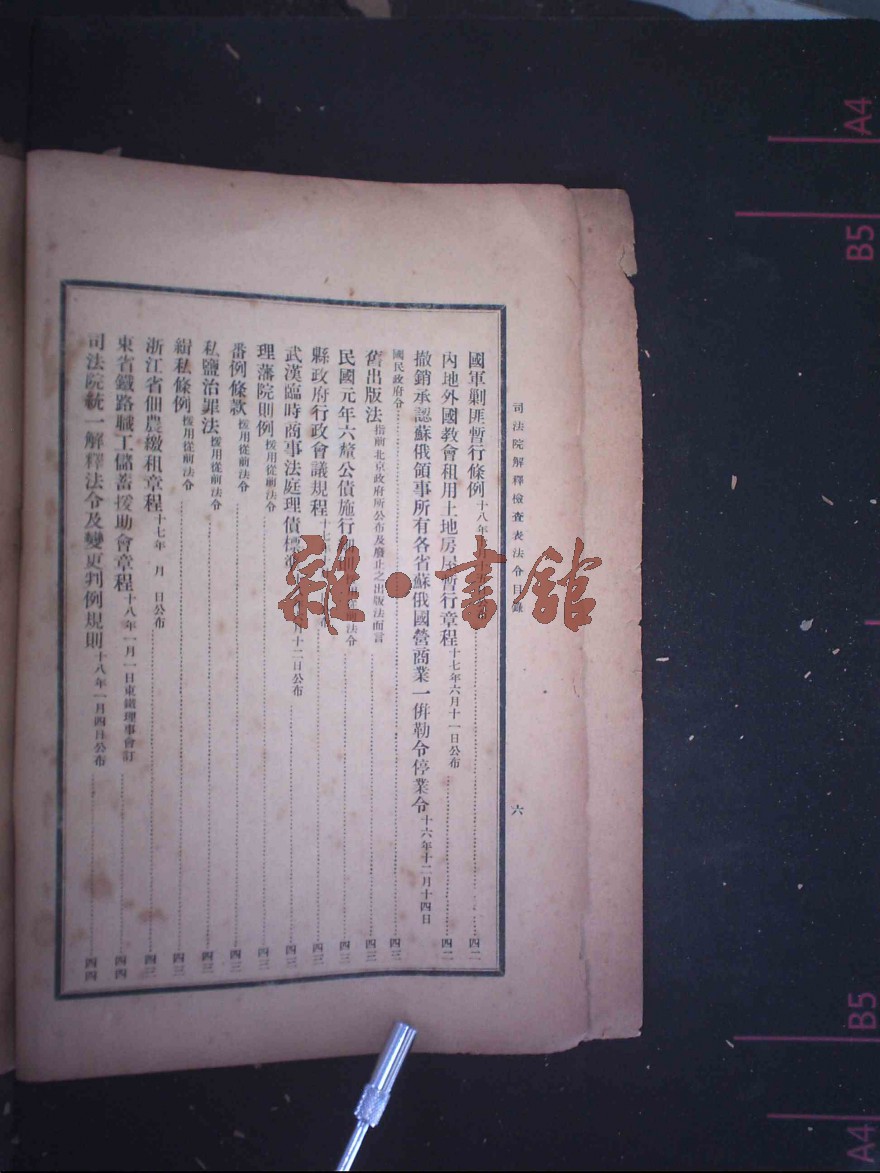 司法院解釋檢查表法令目錄
六
國軍剿匪暫行條例十八年……四二
內地外國教會租用土地房屋暫行章程十七年六月十一日公布……四二
撤銷承認蘇俄領事所有各省蘇俄國營商業一併勒令停業令十六年十二月十四日
國民政府令……四三
舊出版法指前北京政府所公布及廢止之出版法而言……四三
民國元年六釐公債施行法令……四三
縣政府行政會議規程十七……四三
武漢臨時商事法庭理債標月十二日公布……四三
理藩院則例援用從前法令……四三
番例條款援用從前法令……四三
私鹽治罪法援用從前法令……四三
緝私條例援用從前法令……四三
浙江省佃農繳租章程十七年 月 日公布……四三
東省鐵路職工儲蓄援助會章程十八年一月一日東鐵理事會訂……四四
司法院統一解釋法令及變更判例規則十八年一月四日公布……四四
雜·書館
A4
B5
B5
A4